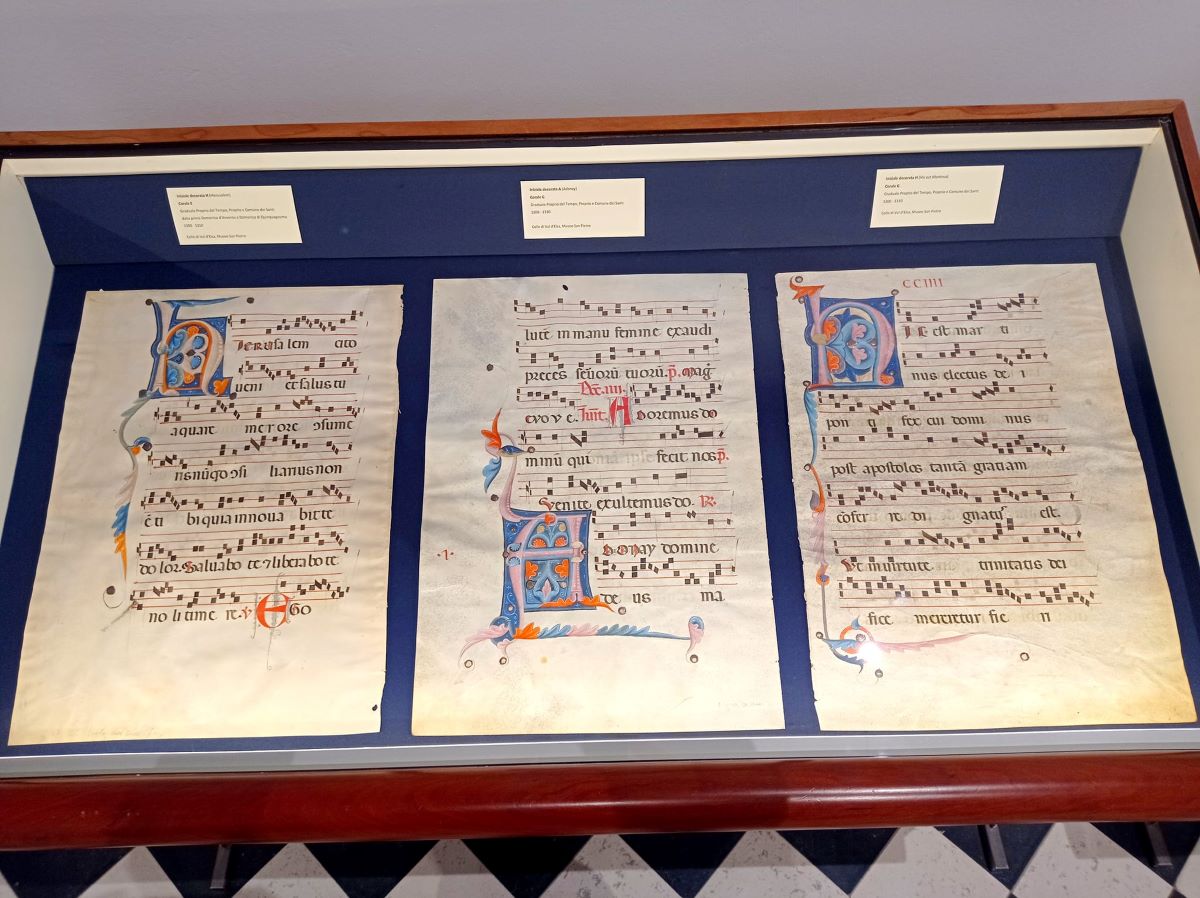 Iniziale decorata H (Hierusalem)
Corale E
Graduale Proprio del Tempo, Proprio e Comune dei Santi
dalla prima Domenica d'Avvento a Domenica di Quinquagesima
Colle di Val d'Elsa, Museo San Pietro
Iniziale decorata A (Adonay)
Corale G
Graduale Proprio del Tempo, Proprio e Comune dei Santi
Colle di Val d'Elsa, Museo San Pietro
Iniziale decorata H (Hic est Martinus)
Corale G
Graduale Proprio del Tempo, Proprio e Comune dei Santi
Colle di Val d'Elsa, Museo San Pietro
Ierusalem cito
ueni et salus tu
a quare merore
lianus non
bi quia innoua bit te
dolor. Saluabo te liberabo te
noli time re. EGo
lucē in manu femine exaudi
preces seruorū tuorū. p̄. Magn̄
evove. Inuit. Adoremus do
minū qui ipse fecit nos p̄.
Venite exultemus do. R.
·I·
Adonay domine
de us ma
CCIIII
HIc est mar ti
nus electus de i
pon ti fex cui domi nus
post apostolos tantā gratiam
gnatus est.
Vt in uirtute trinitatis dei
fice mereretur fie ri